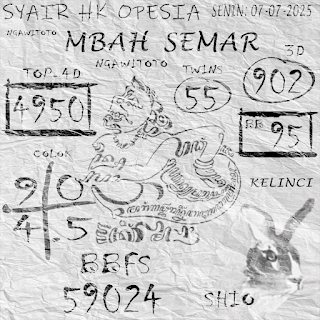 SYAIR HK OPESIA SENIN: 07-07-2025
NGAWITOTO
MBAH SEMAR
NGAWITOTO
TOP 4D
TWINS
3D
4950
55
902
BB
95
COLOK
9 0
4 5
KELINCI
BBFS
59024
SHIO